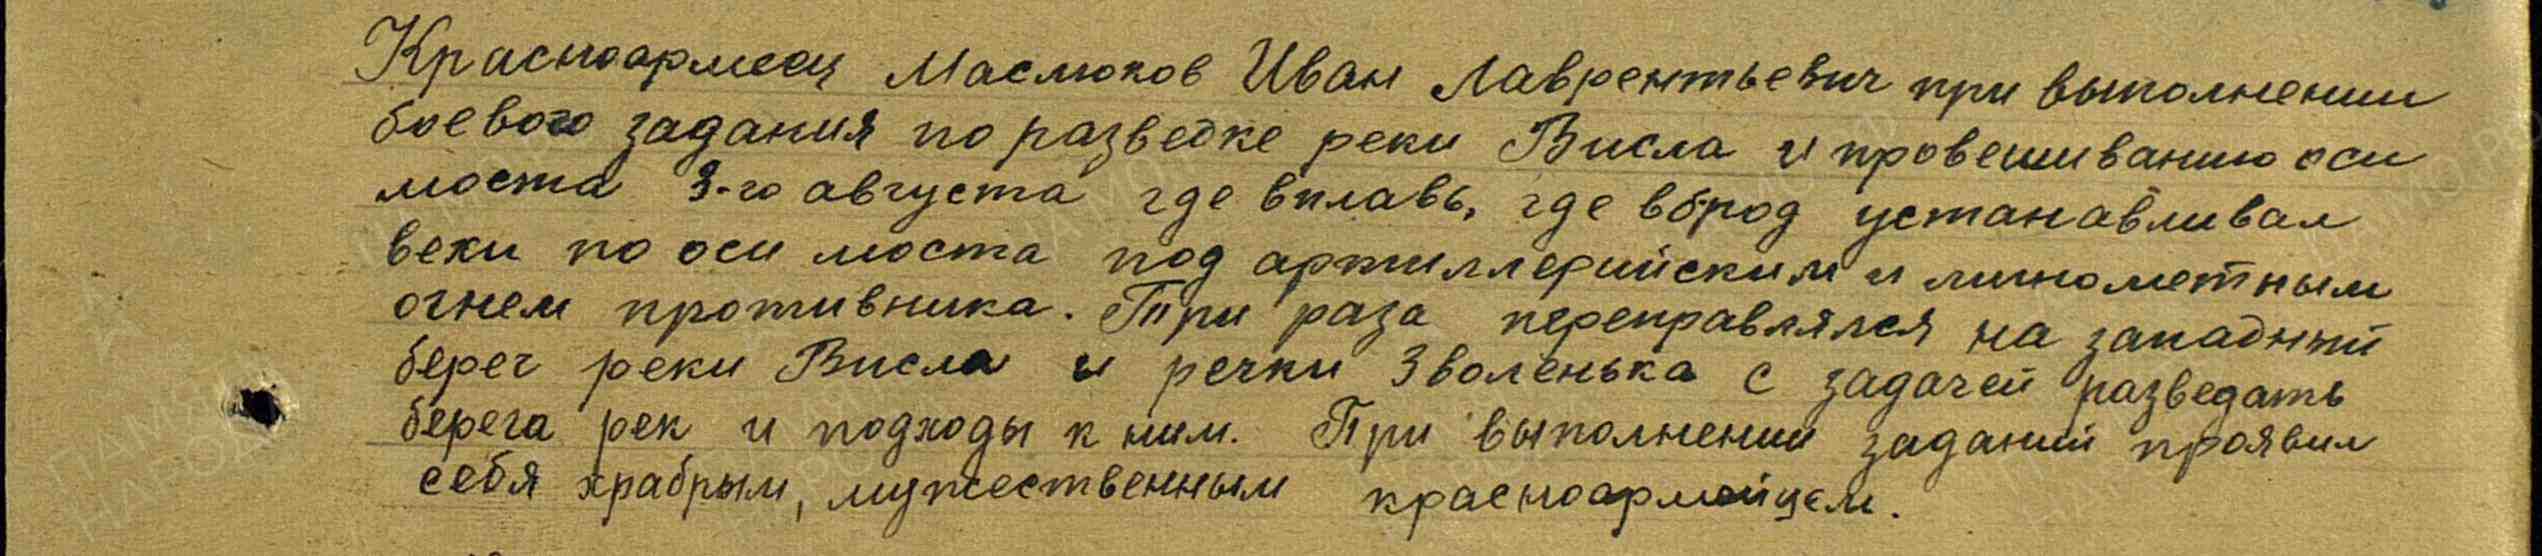 Красноармеец Маслюков Иван Лаврентьевич при выполнении
боевого задания по разведке реки Висла и провешиванию оси
моста 3-го августа где вплавь, где вброд устанавливал
вехи по оси моста под артиллерийским и минометным
огнем противника. При раза переправлялся на западный
берег реки Висла и речки Зволенька с задачей разведать
берега рек и подходы к ним. При выполнении заданий проявил
себя храбрым, мужественным красноармейцем.